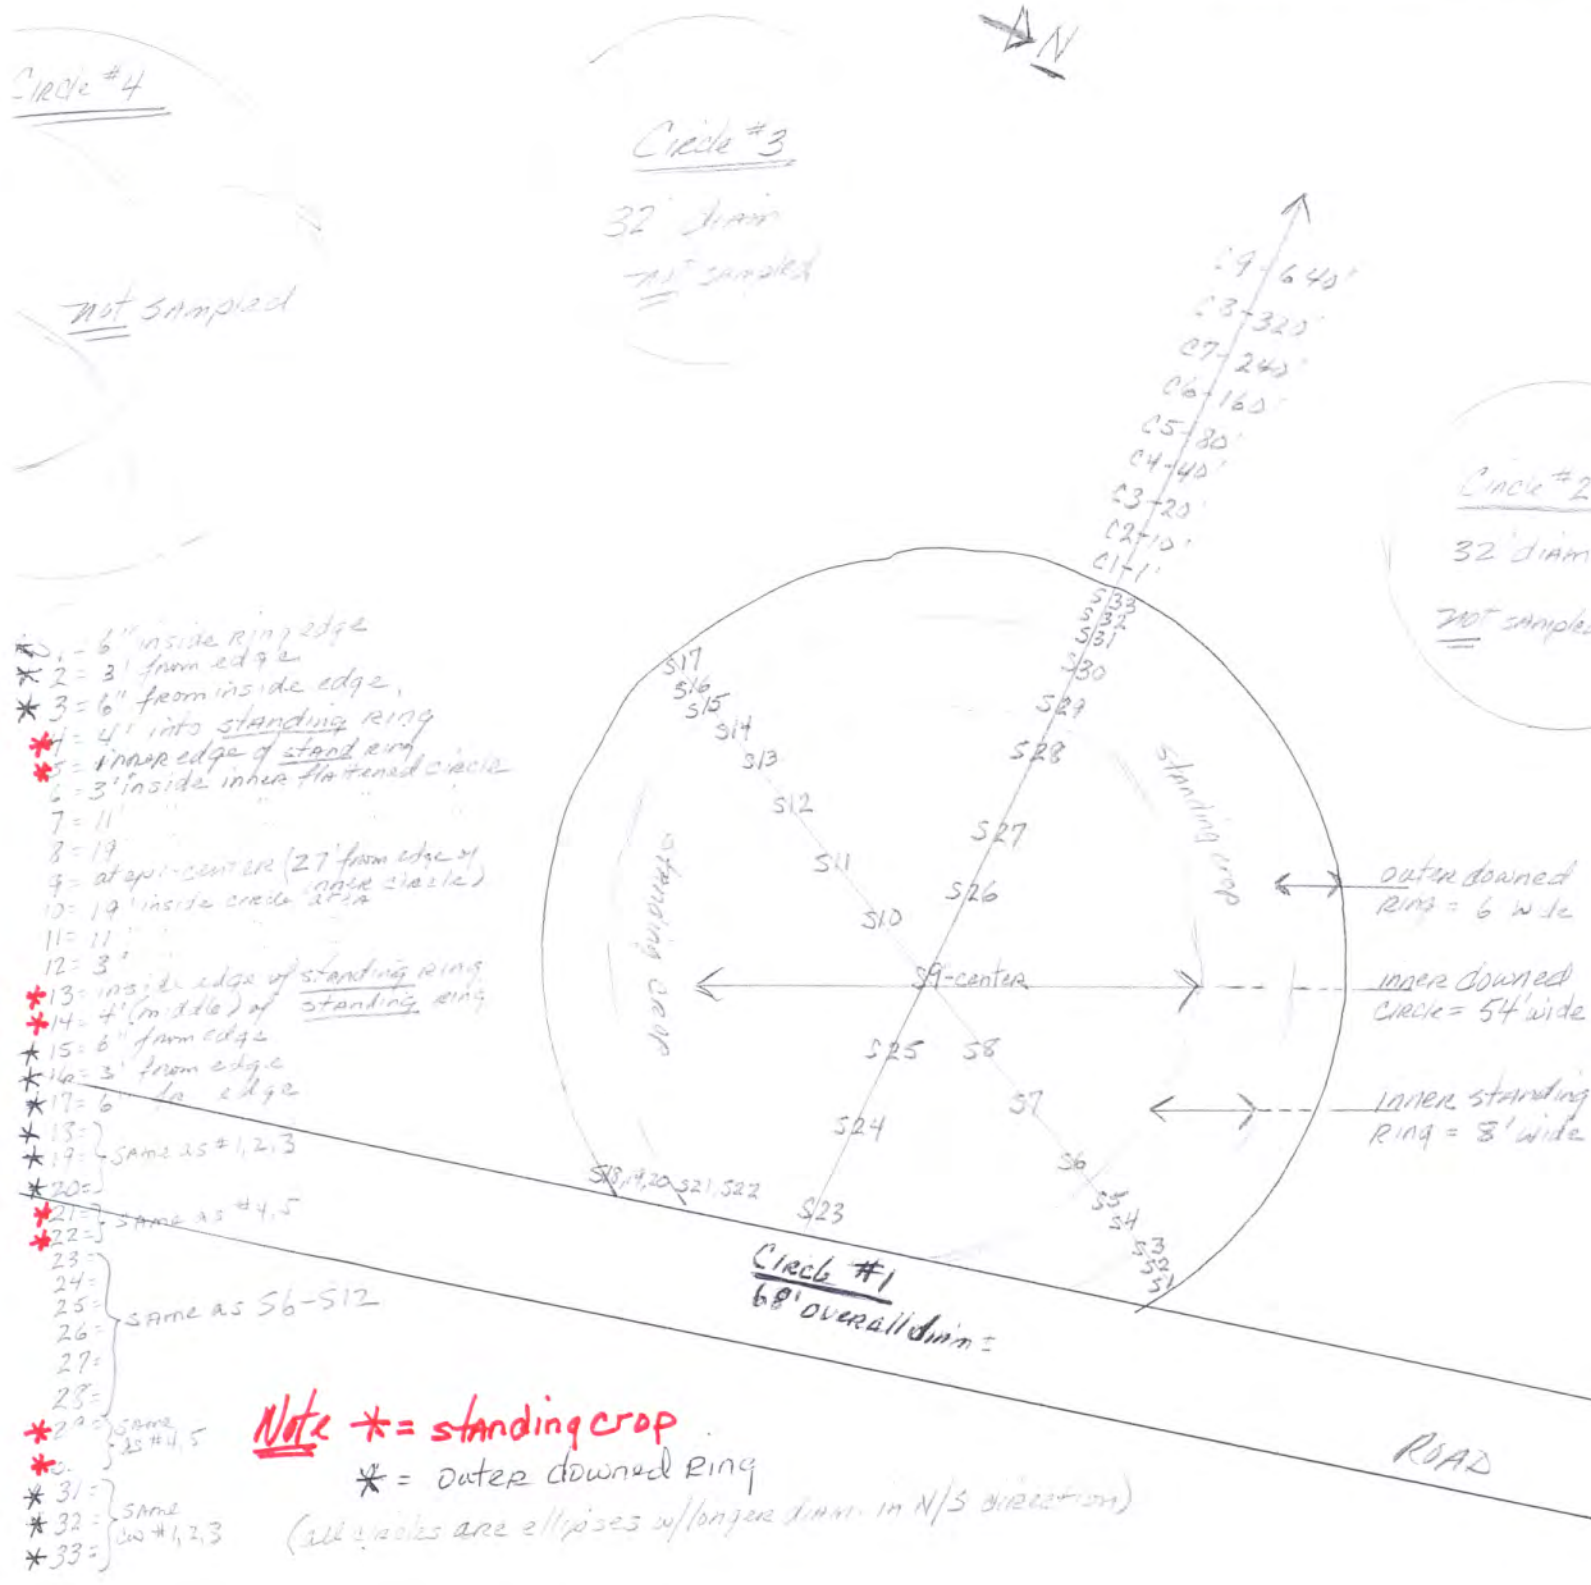 N
Circle #4
not sampled
Circle #3
32' diam
not sampled
C9-640'
C8-320'
C7-240'
C6-160'
C5-80'
C4-40'
C3-20'
C2-10'
C1-1'
Circle #2
32' diam
not sampled
1 - 6" inside Ring edge
* 2 = 3' from edge
* 3 = 6" from inside edge,
* 4 = 4' into standing Ring
* 5 = inner edge of stand ring
6 = 3' inside inner flattened circle
7 = 11' " " "
8 = 19
9 = at epi-center (27' from edge of
inner circle)
10 = 19' inside circle area
11 = 11 "
12 = 3"
* 13 = inside edge of standing Ring
* 14 = 4' (middle) of standing ring
* 15 = 6" from edge
* 16 = 3' from edge
* 17 = 6" edge
* 18 =
* 19 = same as #1,2,3
* 20 =
* 21 =
same as #4,5
* 22 =
23 =
24 =
25 = same as S6-S12
26 =
27 =
28 =
* 29 = same
as #4,5
*
* 31 =
* 32 = same
as #1,2,3
* 33 =
S33
S32
S31
S30
S29
S28
S27
S26
S9-center
S25
S24
S23
S17
S16
S15
S14
S13
S12
S11
S10
S8
S7
S6
S5
S4
S3
S2
S1
S18,19,20 S21, S22
standing crop
standing crop
outer downed
Ring = 6' wide
inner downed
circle = 54' wide
inner standing
Ring = 8' wide
Circle #1
68' overall diam =
ROAD
Note * = standing crop
* = outer downed Ring
(all circles are ellipses w/longer diam. in N/S direction)